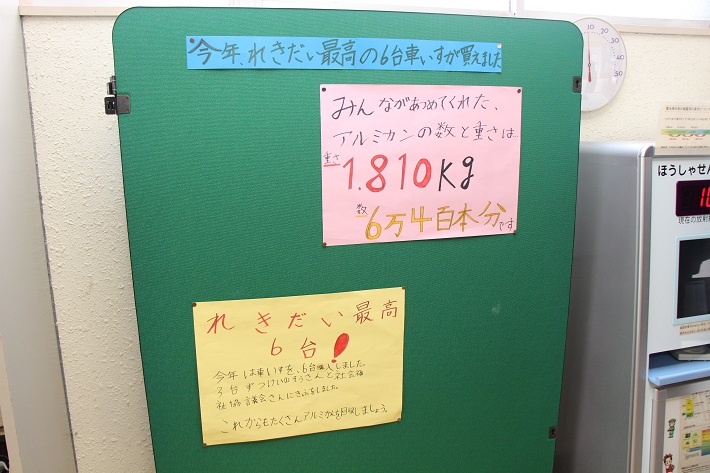 今年、れきだい最高の6台車いすが買えました
みんながあつめてくれた、
アルミカンの数と重さは、
重さ
1.810kg
数
6万4百本分です
れきだい最高
6台!
今年は車いすを、6台購入しました。
3台ずつけいのすうさんと社会福
祉協議会さんにきふをしました。
これからもたくさんアルミカンを回収しましょう。
ほうしゃせん
現在の放射